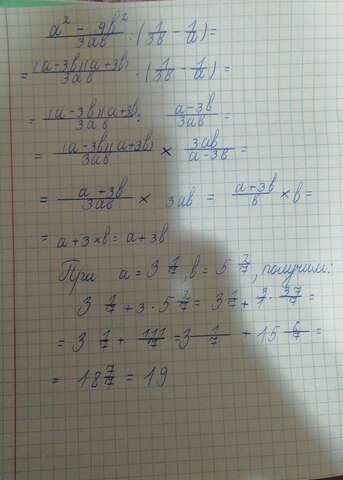 (a² - 9b²)/(3ab) : (1/3b - 1/a) =
= ((a-3b)(a+3b))/(3ab) : (1/3b - 1/a) =
= ((a-3b)(a+3b))/(3ab) : (a-3b)/(3ab) =
= ((a-3b)(a+3b))/(3ab) × (3ab)/(a-3b) =
= (a+3b)/(3ab) × 3ab = (a+3b)/b × b =
= a+3×b = a+3b
При a = 3 1/7, b = 5 2/7, получим:
3 1/7 + 3 · 5 2/7 = 3 1/7 + 3/1 · 37/7 =
= 3 1/7 + 111/7 = 3 1/7 + 15 6/7 =
= 18 7/7 = 19